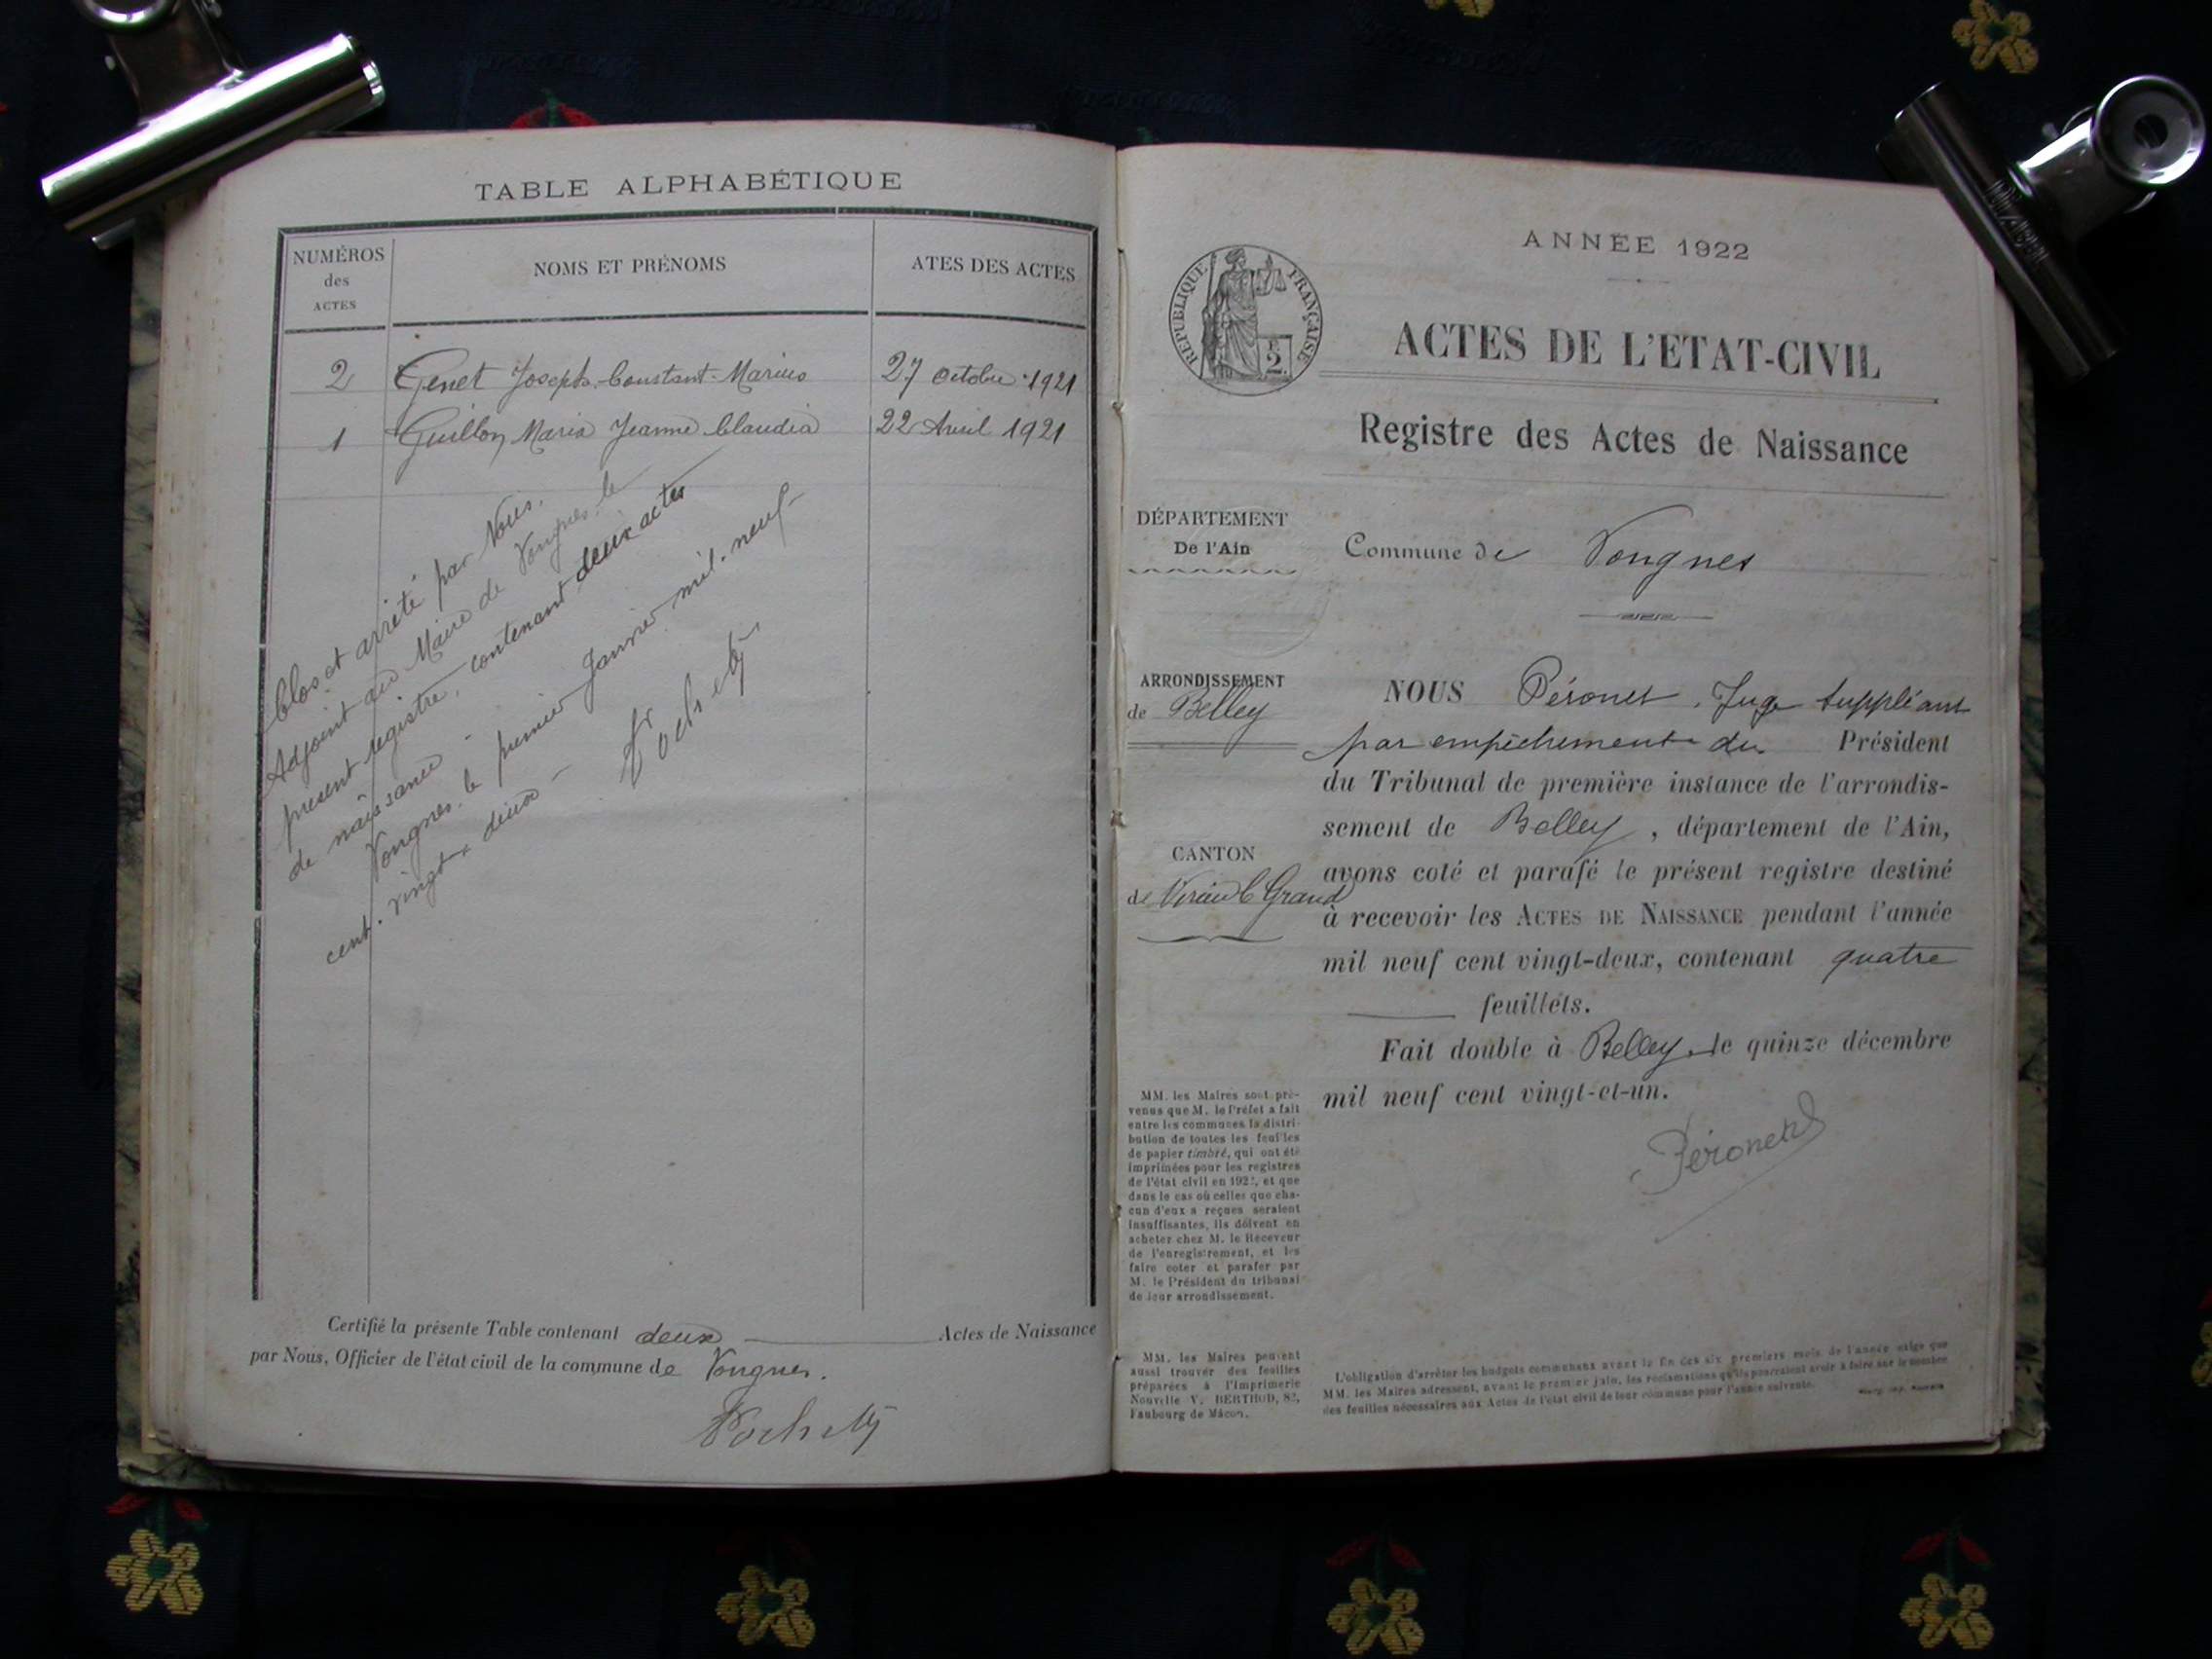 TABLE ALPHABÉTIQUE
NUMÉROS
des
ACTES
NOMS ET PRÉNOMS
ATES DES ACTES
2 Genet Joseph-Constant-Marius 27 Octobre 1921
1 Guillon Maria Jeanne Claudia 22 Avril 1921
Clos et arrêté par Nous,
Adjoint au Maire de Vongnes, le
présent registre, contenant deux actes
de naissance -
Vongnes le premier Janvier mil-neuf-
cent-vingt-deux -
Certifié la présente Table contenant deux Actes de Naissance
par Nous, Officier de l'état civil de la commune de Vongnes.
ANNÉE 1922
RÉPUBLIQUE FRANÇAISE
2
ACTES DE L'ETAT-CIVIL
Registre des Actes de Naissance
DÉPARTEMENT
De l'Ain
Commune de Vongnes
ARRONDISSEMENT
de Belley
CANTON
de Virieu le Grand
NOUS Péronet, Juge Suppléant
par empêchement du Président
du Tribunal de première instance de l'arrondis-
sement de Belley, département de l'Ain,
avons coté et parafé le présent registre destiné
à recevoir les ACTES DE NAISSANCE pendant l'année
mil neuf cent vingt-deux, contenant quatre
feuillets.
Fait double à Belley, le quinze décembre
mil neuf cent vingt-et-un.
Péronet
MM. les Maires sont pré-
venus que M. le Préfet a fait
entre les communes la distri-
bution de toutes les feuilles
de papier timbré, qui ont été
imprimées pour les registres
de l'état civil en 1922, et que
dans le cas où celles que cha-
cun d'eux a reçues seraient
insuffisantes, ils doivent en
acheter chez M. le Receveur
de l'enregistrement, et les
faire coter et parafer par
M. le Président du tribunal
de leur arrondissement.
MM. les Maires peuvent
aussi trouver des feuilles
préparées à l'Imprimerie
Nouvelle V. BERTHOD, 82,
Faubourg de Mâcon.
L'obligation d'arrêter les budgets communaux avant la fin des six premiers mois de l'année exige que
MM. les Maires adressent, avant le premier juin, les réclamations qu'ils pourraient avoir à faire sur le nombre
des feuilles nécessaires aux Actes de l'état civil de leur commune pour l'année suivante.